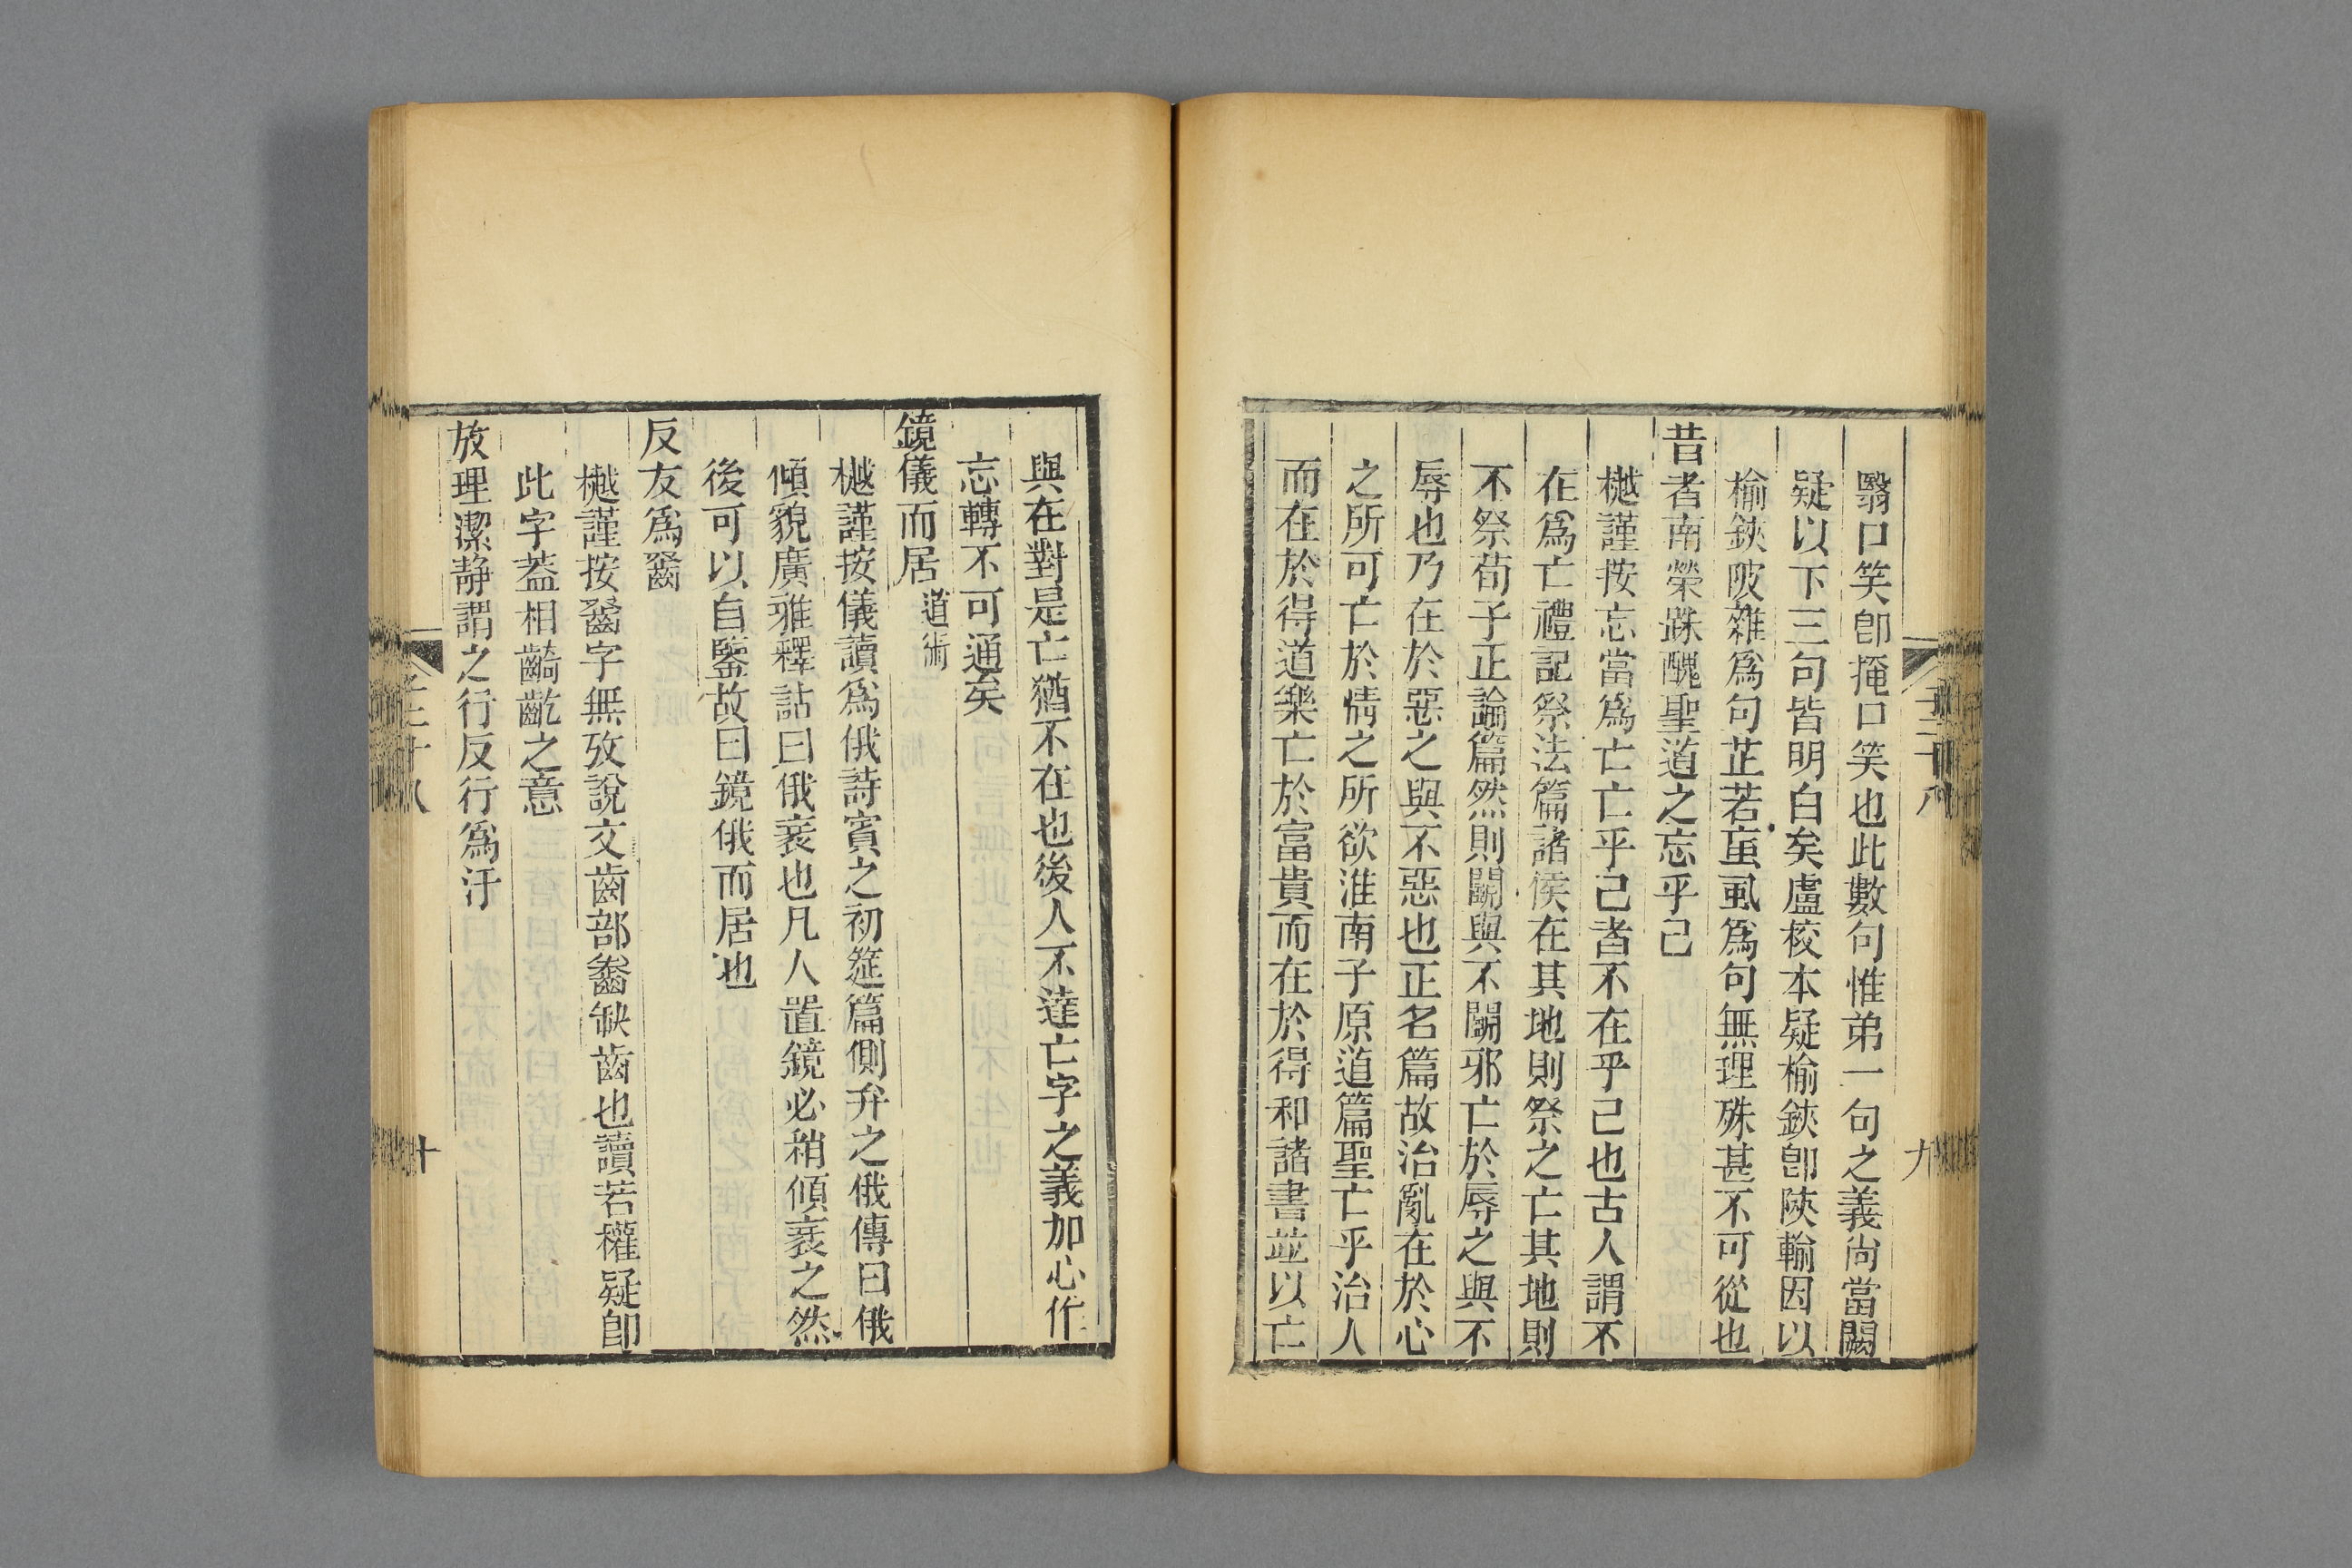 翳口笑卽掩口笑也此數句惟弟一句之義尙當闕
疑以下三句皆明白矣盧校本疑榆鋏卽陝輸因以
榆鋏陂雜爲句芷若䖟虱爲句無理殊甚不可從也
昔者南榮跦醜聖道之忘乎己
樾謹按忘當爲亡亡乎己者不在乎己也古人謂不
在爲亡禮記祭法篇諸侯在其地則祭之亡其地則
不祭荀子正論篇然則鬭與不鬭邪亡於辱之與不
辱也乃在於惡之與不惡也正名篇故治亂在於心
之所可亡於情之所欲淮南子原道篇聖亡乎治人
而在於得道樂亡於富貴而在於得和諸書並以亡
九
與在對是亡猶不在也後人不達亡字之義加心作
忘轉不可通矣
鏡儀而居 道術
樾謹按儀讀爲俄詩賓之初筵篇側弁之俄傳曰俄
傾貌廣雅釋詁曰俄衺也凡人置鏡必稍傾衺之然
後可以自鑒故曰鏡俄而居也
反友爲齾
樾謹按齾字無攷說文齒部齤缺齒也讀若權疑卽
此字葢相齮齕之意
放理潔静謂之行反行爲汙
十